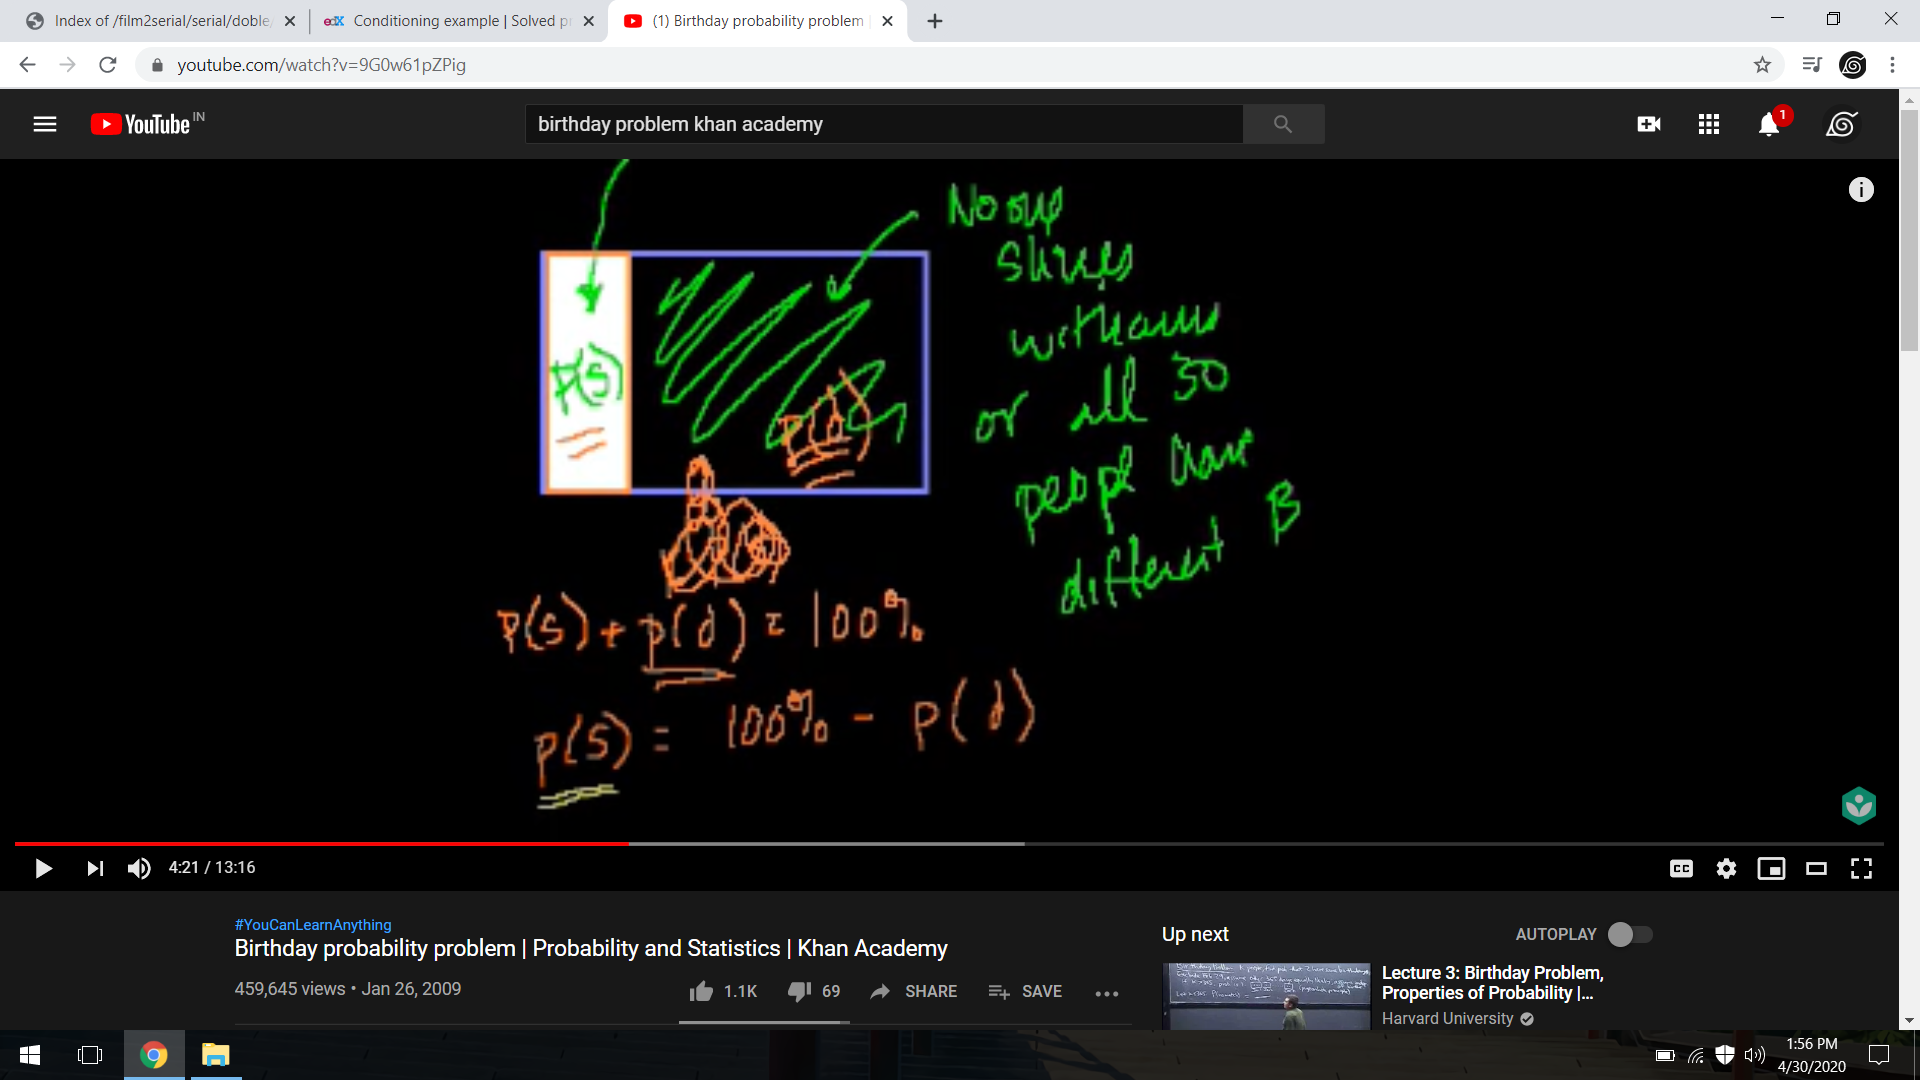 Index of /film2serial/serial/doble
edX Conditioning example | Solved p
(1) Birthday probability problem
youtube.com/watch?v=9G0w61pZPig
YouTube IN
birthday problem khan academy
1
No one
shares
with anyone
or all 30
people have
different B
P(S)
P(d)
P(S) + P(d) = 100%
P(S) = 100% - P(d)
4:21 / 13:16
CC
#YouCanLearnAnything
Birthday probability problem | Probability and Statistics | Khan Academy
459,645 views • Jan 26, 2009
1.1K
69
SHARE
SAVE
Up next
AUTOPLAY
Lecture 3: Birthday Problem,
Properties of Probability |...
Harvard University
1:56 PM
4/30/2020